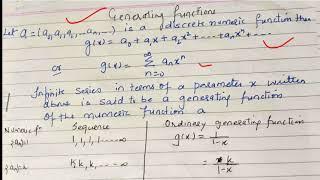 Generating functions
Let a = (a₀, a₁, a₂, ... aₙ, ...) is a discrete numeric function then
g(x) = a₀ + a₁x + a₂x² + ---- + aₙxⁿ + ----
or g(x) = ∞Σn=0 aₙxⁿ
Infinite series in terms of a parameter x written
above is said to be a generating function
of the numeric function a
Numeric f. Sequence Ordinary generating function
1, 1, 1, 1 ----∞ g(x) = 1/1-x
K, k, k, ... ---∞ = k/1-x